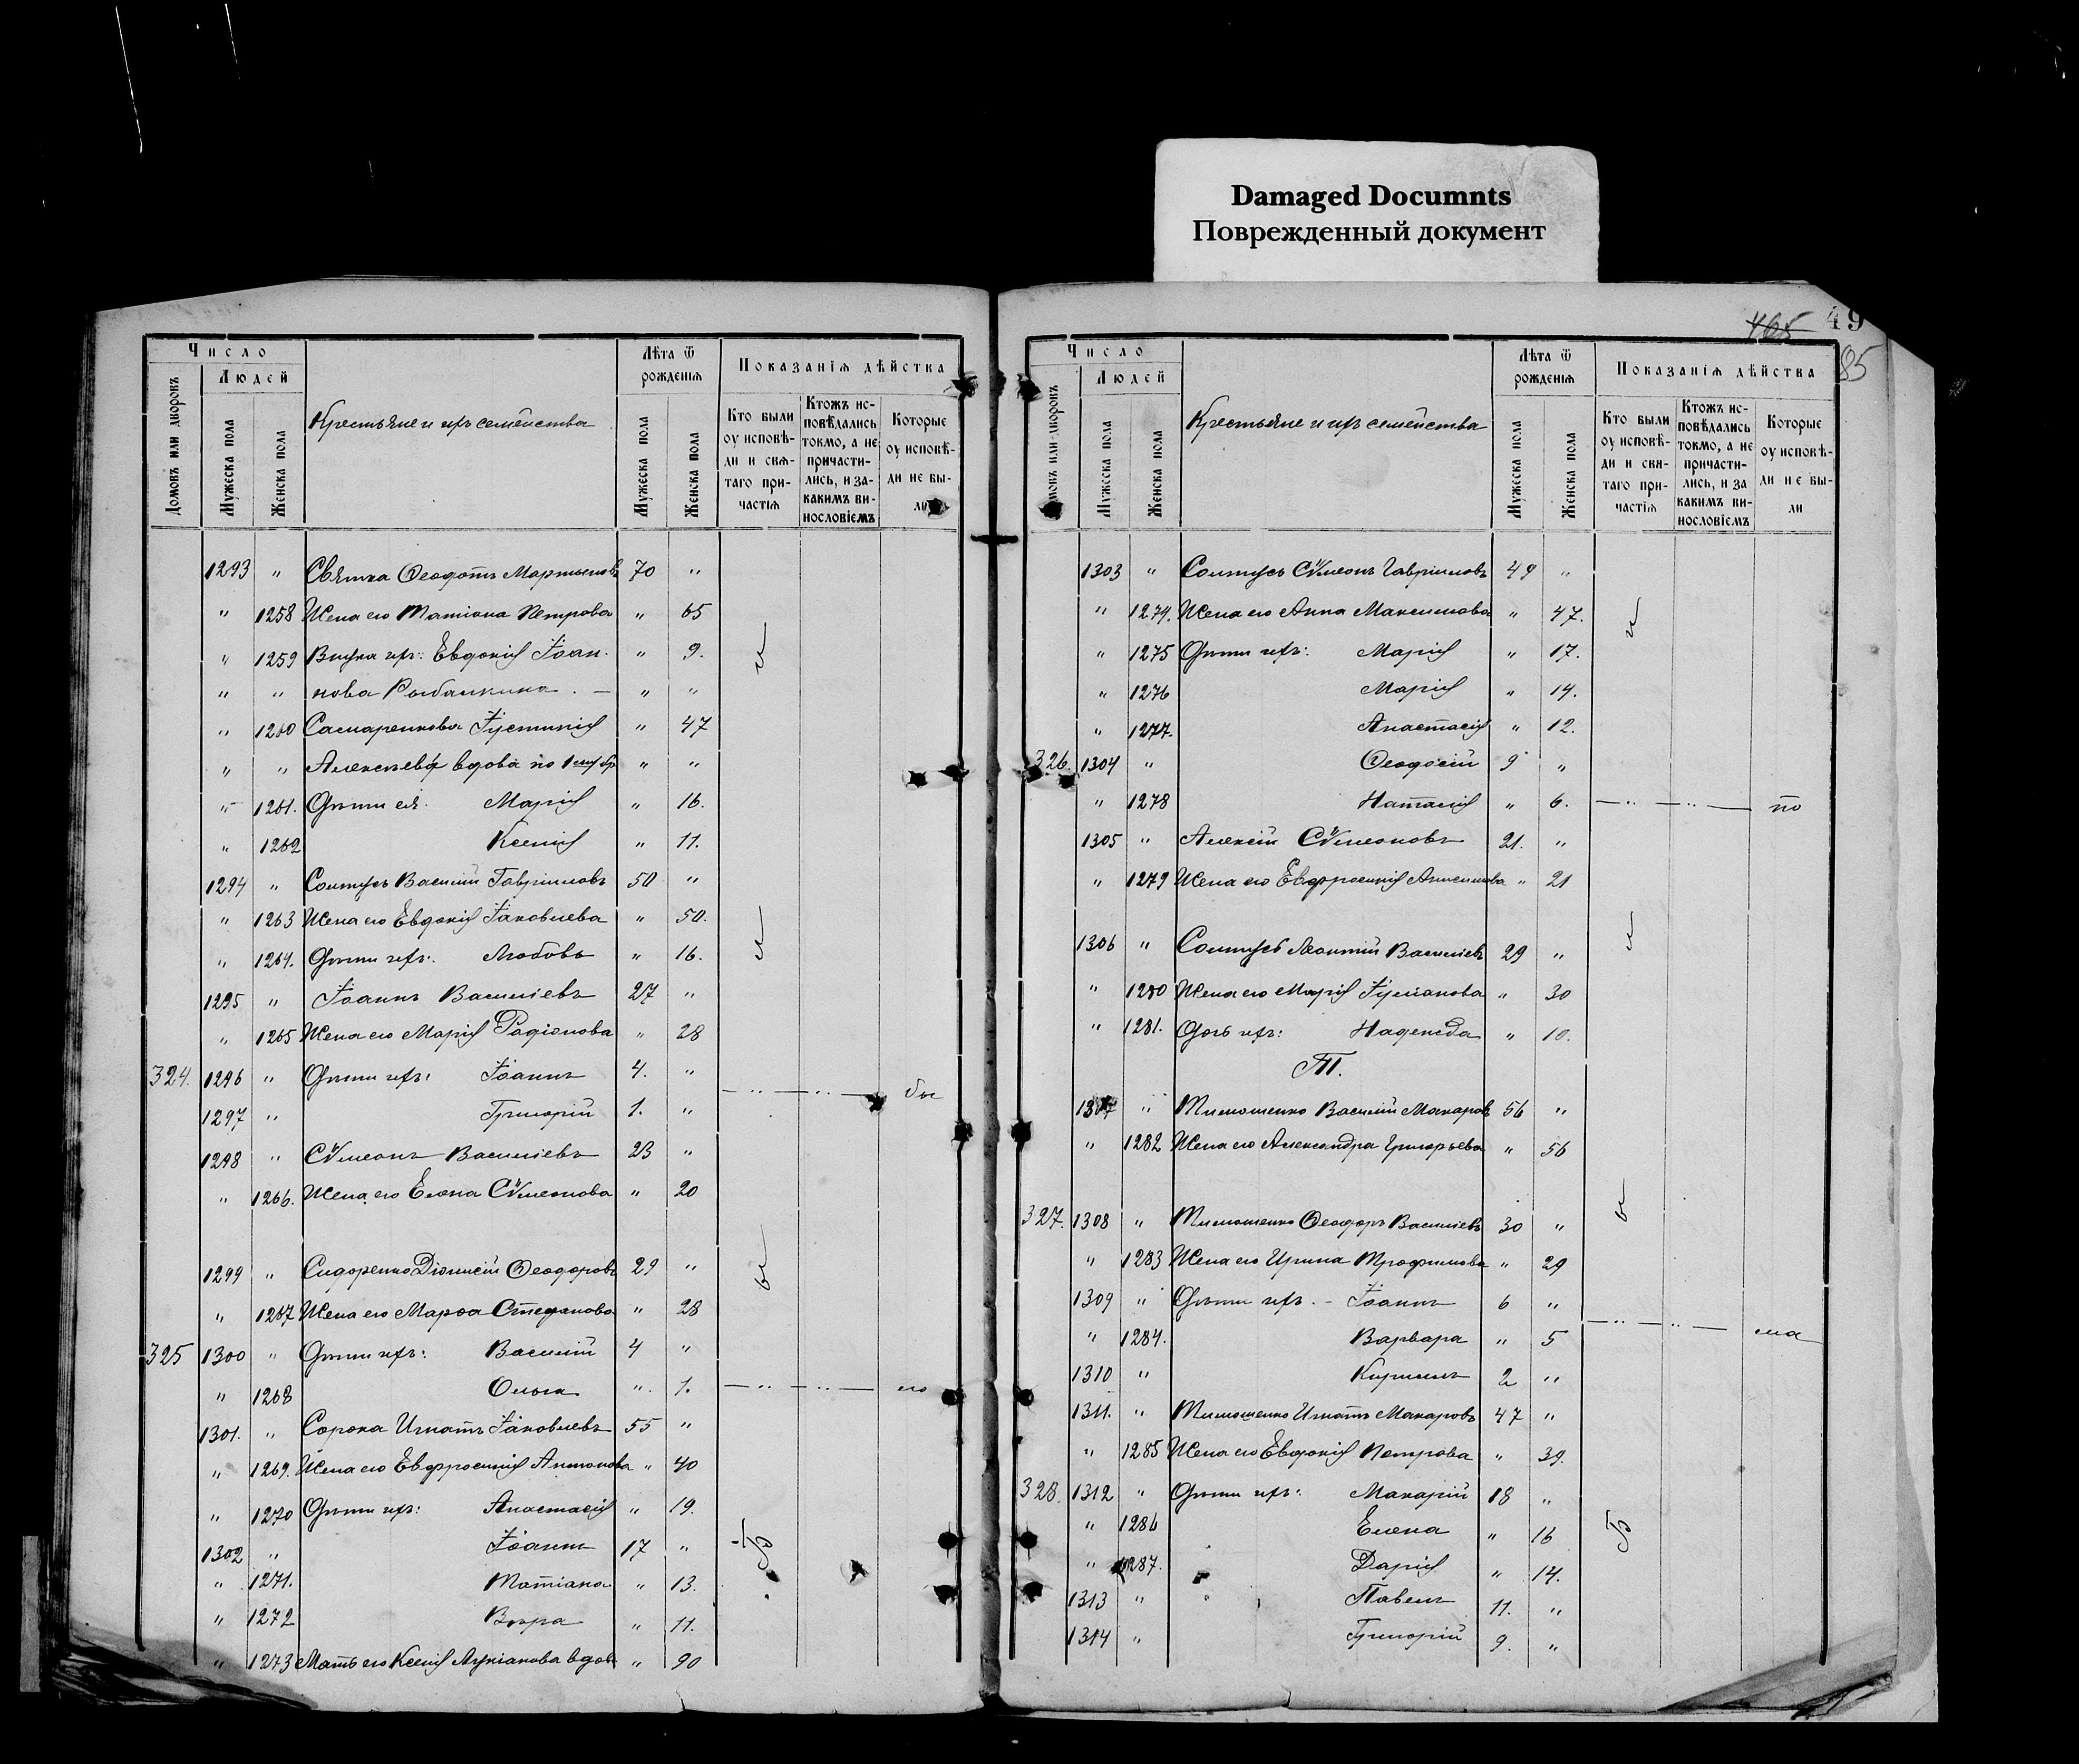 Damaged Documnts
Поврежденный документ
405
49
85
Число
Людей
Домовъ или дворовъ
Мужеска пола
Женска пола
Крестьяне и ихъ семейства
Лѣта ѿ рожденїѧ
Мужеска пола
Женска пола
Показанїѧ дѣйства
Кто были оу исповѣди и свѧтаго причастїѧ
Ктожъ исповѣдались токмо, а не причастились, и за какимъ винословїемъ
Которые оу исповѣди не были
1293 " Святка Ѳеодотъ Мартыновъ 70 "
" 1258 Жена его Татіана Петрова " 65
" 1259 Внука ихъ: Евдокія Іоан- " 9.
" " нова Рыбалкина. — " "
" 1260 Самаренкова Іустинія " 47
" " Алексѣева вдова по 1 му бр " "
" 1261. Дѣти ея: Марія " 16.
" 1262 Ксенія " 11.
1294 " Солтусъ Василій Гавріиловъ 50 "
" 1263 Жена его Евдокія Іаковлева " 50.
" 1264. Дѣти ихъ: Любовь " 16.
1295 " Іоаннъ Василіевъ 27 "
" 1265 Жена его Марія Родіонова " 28
324. 1296 " Дѣти ихъ: Іоаннъ 4. "
— " — " — бы
1297 " Григорій 1. "
1298 " Сѵмеонъ Василіевъ 23 "
" 1266. Жена его Елена Сѵмеонова " 20
1299 " Сидоренко Діонисій Ѳеодоровъ 29 "
" 1267 Жена его Марѳа Стефанова " 28
325 1300 " Дѣти ихъ: Василій 4 "
" 1268 Ольга " 1. — " — " — ло
1301. " Сорока Игнатъ Іаковлевъ 55 "
" 1269. Жена его Евфросинія Антонова " 40
" 1270 Дѣти ихъ: Анастасія " 19.
1302 " Іоаннъ 17 "
" 1271. Татіана " 13.
" 1272 Вѣра " 11.
" 1273 Мать его Ксенія Лукіанова вдов " 90
Число
Людей
Домовъ или дворовъ
Мужеска пола
Женска пола
Крестьяне и ихъ семейства
Лѣта ѿ рожденїѧ
Мужеска пола
Женска пола
Показанїѧ дѣйства
Кто были оу исповѣди и свѧтаго причастїѧ
Ктожъ исповѣдались токмо, а не причастились, и за какимъ винословїемъ
Которые оу исповѣди не были
1303 " Солтусъ Сѵмеонъ Гавріиловъ 49 "
" 1274. Жена его Анна Максимова " 47.
" 1275 Дѣти ихъ: Марія " 17.
" 1276 Марія " 14.
" 1277. Анастасія " 12.
326. 1304 " Ѳеодосій 9 "
" 1278 Наталія " 6. — " — " — но
1305 " Алексій Сѵмеоновъ 21. "
" 1279 Жена его Евфросинія Анисимова " 21
1306 " Солтусъ Леонтій Василіевъ 29 "
" 1280 Жена его Марія Іуліанова " 30
" 1281. Дочь ихъ: Надежда " 10.
Т.
1307 " Тимошенко Василій Макаровъ 56 "
" 1282 Жена его Александра Григорьева " 56
327. 1308 " Тимошенко Ѳеодоръ Василіевъ 30 "
" 1283 Жена его Ирина Трофимова " 29
1309 " Дѣти ихъ. – Іоаннъ 6 "
— " — " — ма
" 1284. Варвара " 5
1310 " Кириллъ 2 "
1311. " Тимошенко Игнатъ Макаровъ 47 "
" 1285 Жена его Евдокія Петрова " 39.
328. 1312 " Дѣти ихъ: Макарій 18 "
" 1286 Елена " 16
" 1287. Дарія " 14.
1313 " Павелъ 11. "
1314 " Григорій 9. "